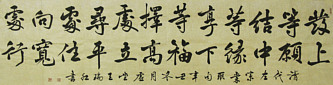 發上
等願
結中
等緣
享下
等福
擇高
處立
尋平
處住
向寬
處行
清代左宗棠